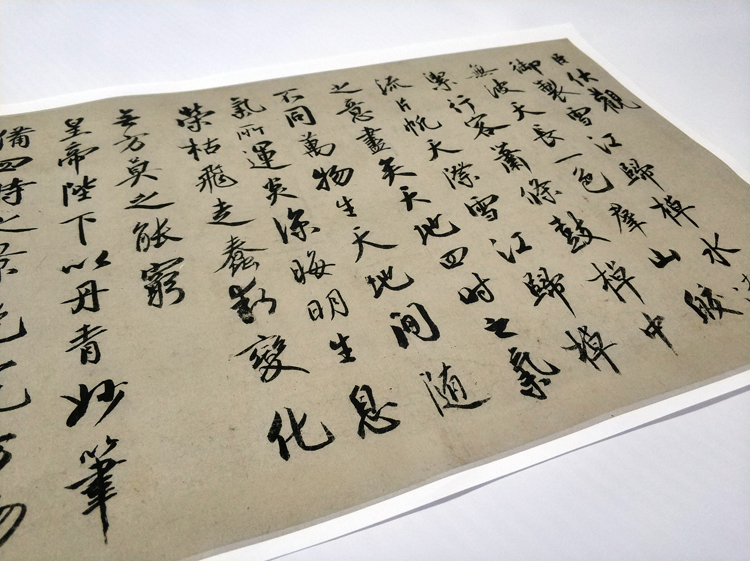 臣伏觀
御製雪江歸棹水遠
無波天長一色羣山皎
潔行客蕭條鼓棹中
流片帆天際雪江歸棹
之意盡矣天地四時之氣
不同萬物生天地間随
氣所運炎涼晦明生息
榮枯飛走蠢動變化
無方莫之能窮
皇帝陛下以丹青妙筆
備四時之景色